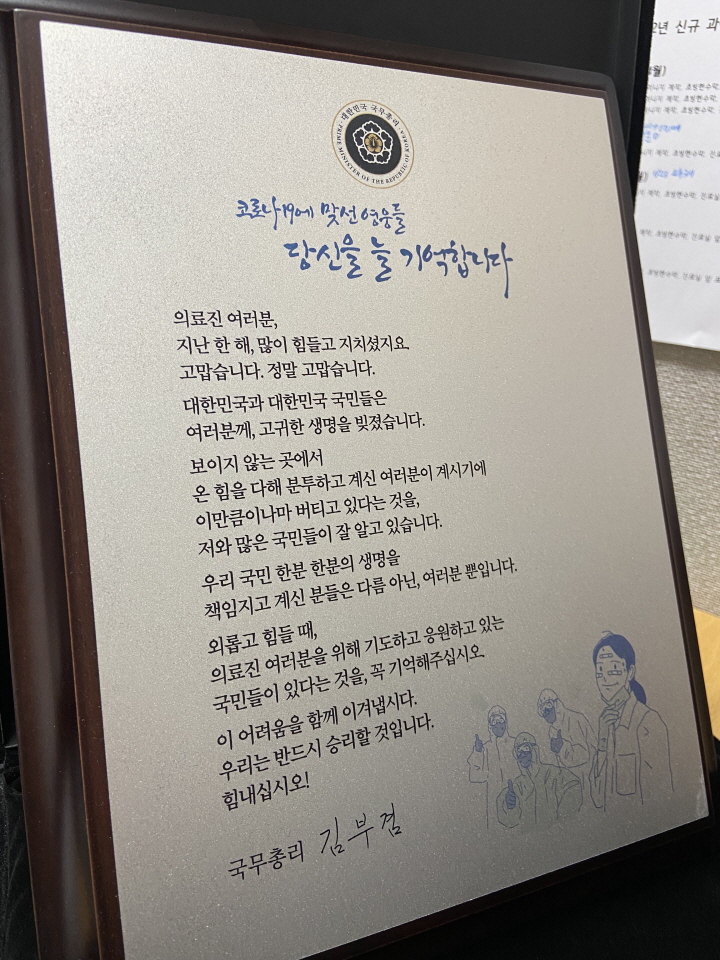 · 대한민국 국무총리 ·
PRIME MINISTER OF THE REPUBLIC OF KOREA
코로나19에 맞선 영웅들
당신을 늘 기억합니다
의료진 여러분,
지난 한 해, 많이 힘들고 지치셨지요.
고맙습니다. 정말 고맙습니다.
대한민국과 대한민국 국민들은
여러분께, 고귀한 생명을 빚졌습니다.
보이지 않는 곳에서
온 힘을 다해 분투하고 계신 여러분이 계시기에
이만큼이나마 버티고 있다는 것을,
저와 많은 국민들이 잘 알고 있습니다.
우리 국민 한분 한분의 생명을
책임지고 계신 분들은 다름 아닌, 여러분 뿐입니다.
외롭고 힘들 때,
의료진 여러분을 위해 기도하고 응원하고 있는
국민들이 있다는 것을, 꼭 기억해주십시오.
이 어려움을 함께 이겨냅시다.
우리는 반드시 승리할 것입니다.
힘내십시오!
국무총리 김부겸
2년 신규 과